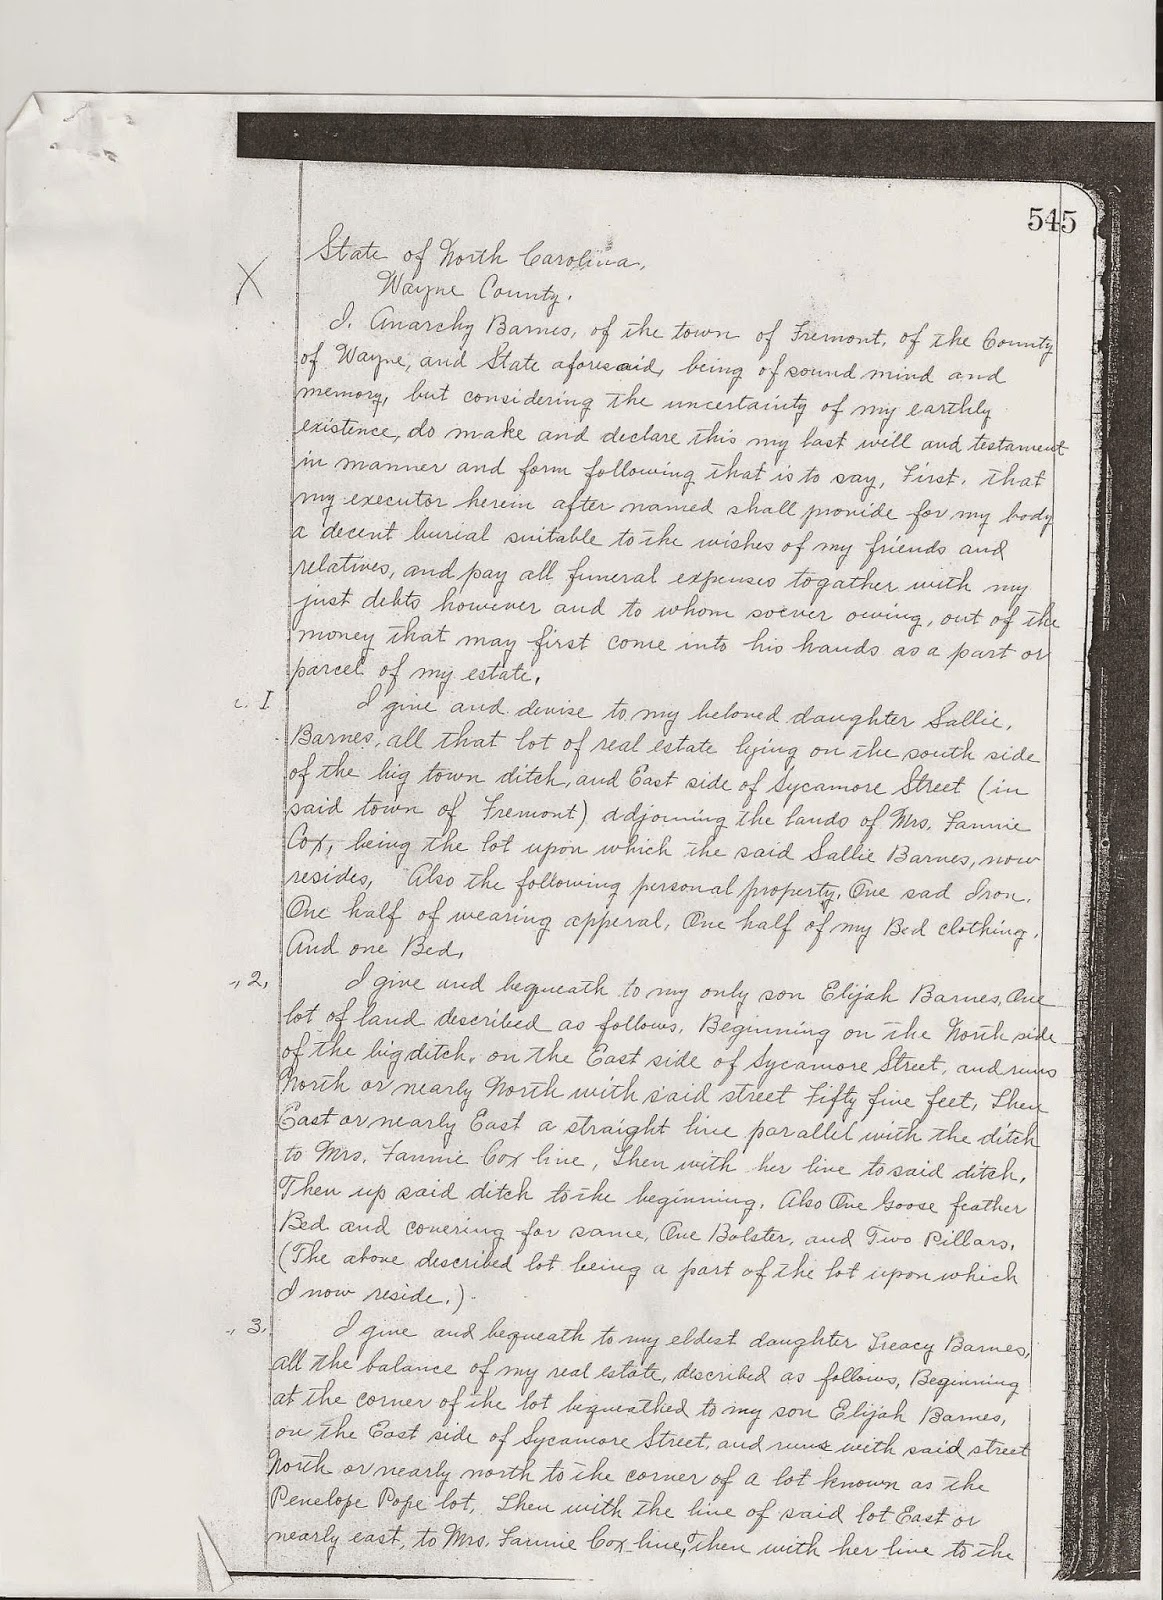 545
State of North Carolina,
Wayne County.
I. Anarchy Barnes, of the town of Fremont, of the County
of Wayne, and State aforesaid, being of sound mind and
memory, but considering the uncertainty of my earthly
existence, do make and declare this my last will and testament
in manner and form following that is to say, First. that
my executor herein after named shall provide for my body
a decent burial suitable to the wishes of my friends and
relatives, and pay all funeral expenses togather with my
just debts however and to whom soever owing, out of the
money that may first come into his hands as a part or
parcel of my estate.
I I give and devise to my beloved daughter Sallie.
Barnes, all that lot of real estate lying on the south side
of the big town ditch, and East side of Sycamore Street (in
said town of Fremont) adjoining the lands of Mrs. Fannie
Cox, being the lot upon which the said Sallie Barnes, now
resides, Also the following personal property, One sad Iron.
One half of wearing apperal, One half of my Bed clothing.
And one Bed.
2, I give and bequeath to my only son Elijah Barnes, One
lot of land described as follows. Beginning on the North side
of the big ditch, on the East side of Sycamore Street, and runs
North or nearly North with said street Fifty five feet, Then
East or nearly East a straight line parallel with the ditch
to Mrs. Fannie Cox line, Then with her line to said ditch,
Then up said ditch to the beginning. Also One Goose feather
Bed and covering for same, One Bolster, and Two Pillars.
(The above described lot being a part of the lot upon which
I now reside.)
3. I give and bequeath to my eldest daughter Treacy Barnes,
all the balance of my real estate, described as follows, Beginning
at the corner of the lot bequeathed to my son Elijah Barnes,
on the East side of Sycamore Street, and runs with said street
North or nearly north to the corner of a lot known as the
Penelope Pope lot, Then with the line of said lot East or
nearly east, to Mrs. Fannie Cox line, Then with her line to the